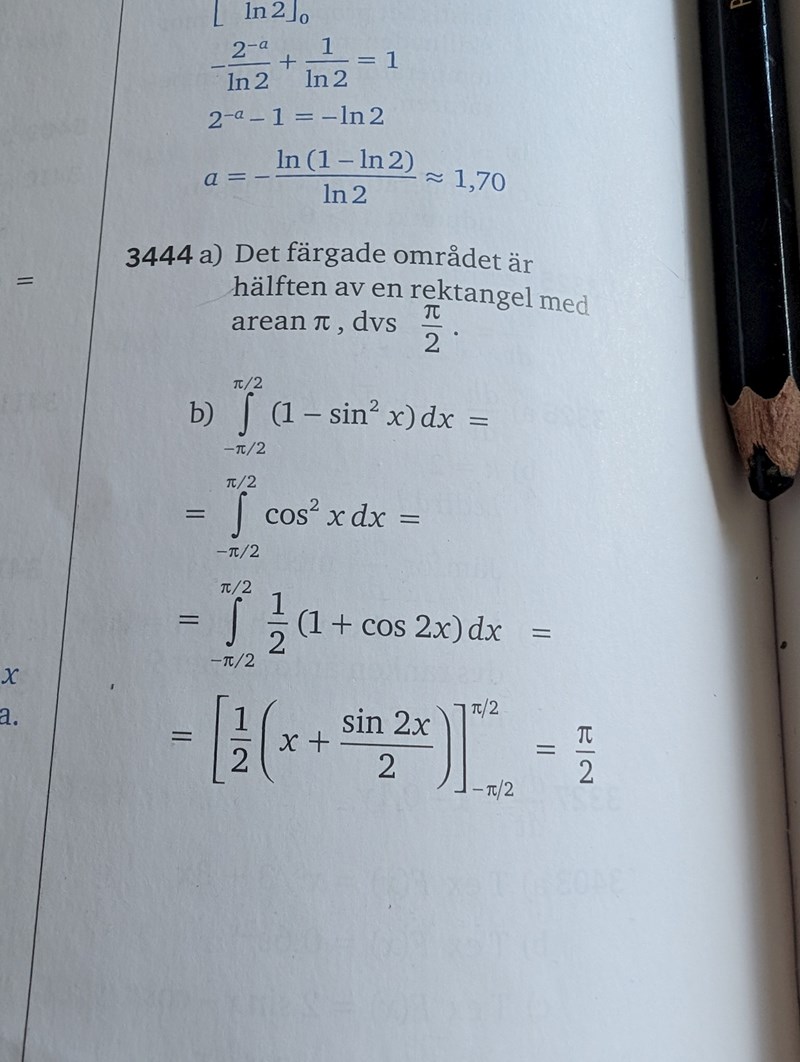 [ ln 2]₀
−2⁻ᵃ/ln 2 + 1/ln 2 = 1
2⁻ᵃ − 1 = −ln 2
a = −ln (1 − ln 2)/ln 2 ≈ 1,70
=
3444 a) Det färgade området är
hälften av en rektangel med
arean π , dvs π/2 .
b) ∫_{−π/2}^{π/2} (1 − sin² x) dx =
= ∫_{−π/2}^{π/2} cos² x dx =
= ∫_{−π/2}^{π/2} 1/2 (1 + cos 2x) dx =
x
a.
= [1/2 (x + sin 2x/2)]_{−π/2}^{π/2} = π/2